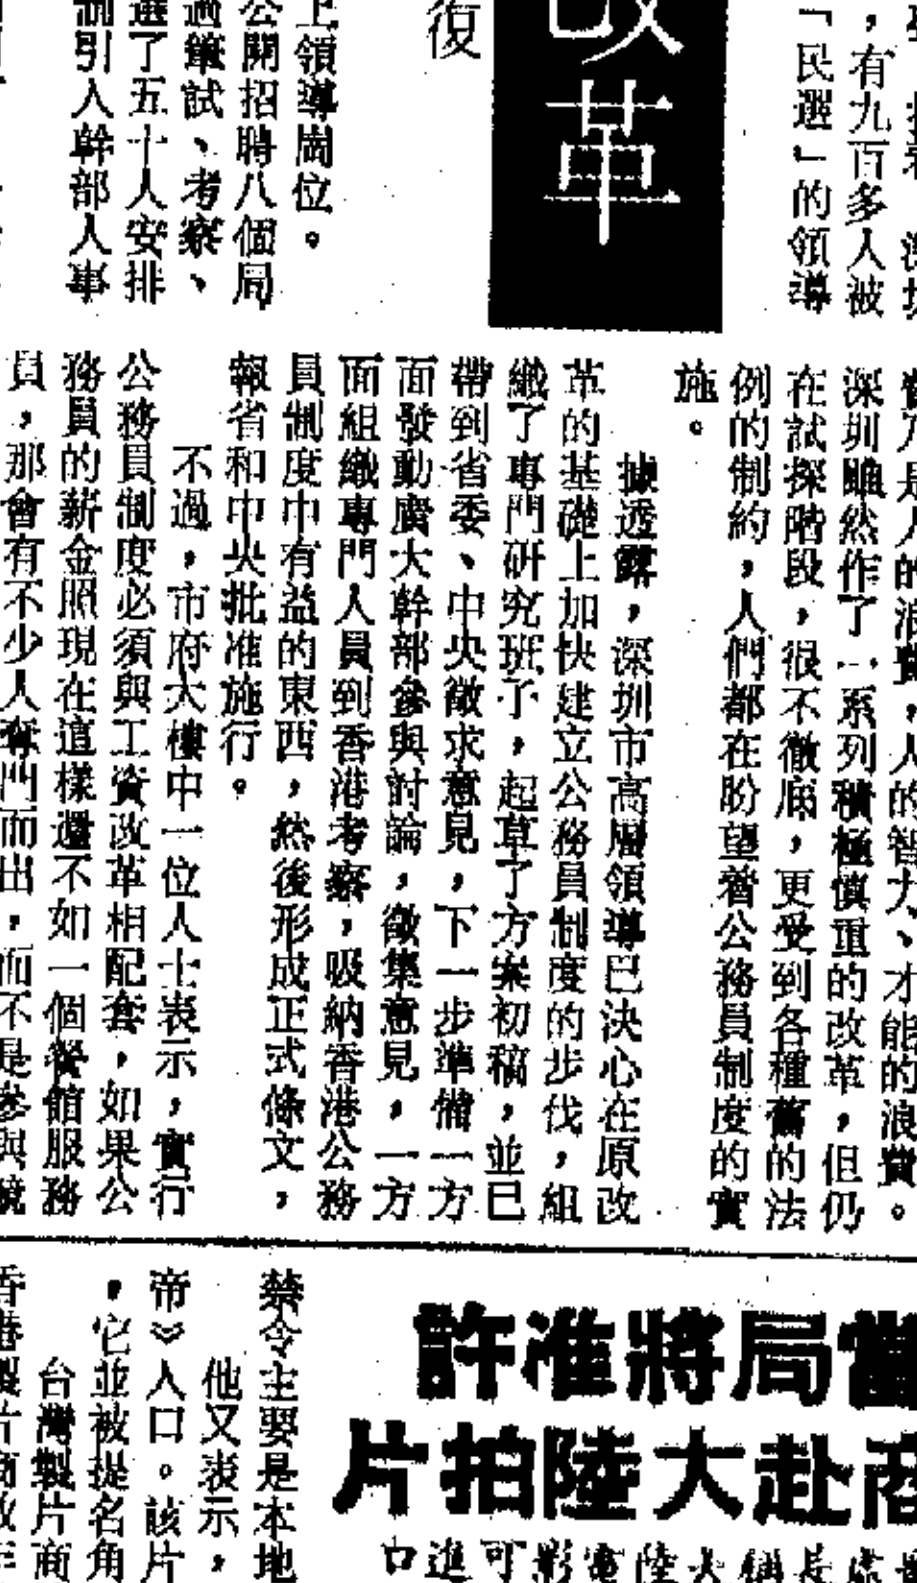 改革
復
，有九百多人被
「民選」的領導
上領導崗位。
公開招聘八個局
過筆試、考察、
選了五十人安排
制引入幹部人事
實乃是人的浪費，人的智力、才能的浪費。
深圳雖然作了一系列積極慎重的改革，但仍
在試探階段，很不徹底，更受到各種舊的法
例的制約，人們都在盼望着公務員制度的實
施。
據透露，深圳市高層領導已決心在原改
革的基礎上加快建立公務員制度的步伐，組
織了專門研究班子，起草了方案初稿，並已
帶到省委、中央徵求意見，下一步準備一方
面發動廣大幹部參與討論，徵集意見，一方
面組織專門人員到香港考察，吸納香港公務
員制度中有益的東西，然後形成正式條文，
報省和中央批准施行。
不過，市府大樓中一位人士表示，實行
公務員制度必須與工資改革相配套，如果公
務員的薪金照現在這樣還不如一個餐館服務
員，那會有不少人奪門而出，而不是參與競
當局將准許
商赴大陸拍片
長稱大陸電影可進口
禁令主要是本地
他又表示，
帝》入口。該片
，它並被提名角
台灣製片商
香港製片商改在